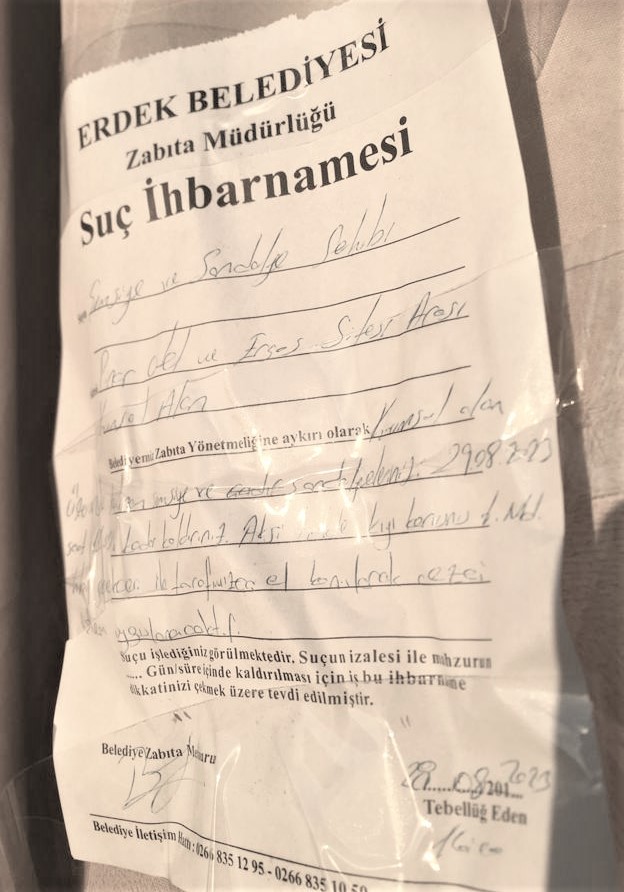 ERDEK BELEDİYESİ
Zabıta Müdürlüğü
Suç İhbarnamesi
Şemsiye ve Sandalye Sahibi
Pınar Otel ve Sitesi Arası
Kumsal Alan
Belediyemiz Zabıta Yönetmeliğine aykırı olarak Kumsal alan
ve sandalyelerinizi 29.08.2023
kadar kaldırınız. Aksi kıyı kanunu
tarafımızca el konularak cezai
uygulanacaktır.
Suçu işlediğiniz görülmektedir. Suçun izalesi ile mahzurun
..... Gün/süre içinde kaldırılması için iş bu ihbarname
dikkatinizi çekmek üzere tevdi edilmiştir.
Belediye Zabıta Memuru
08.2023 201...
Tebellüğ Eden
Belediye İletişim Hattı : 0266 835 12 95 - 0266 835 10 50